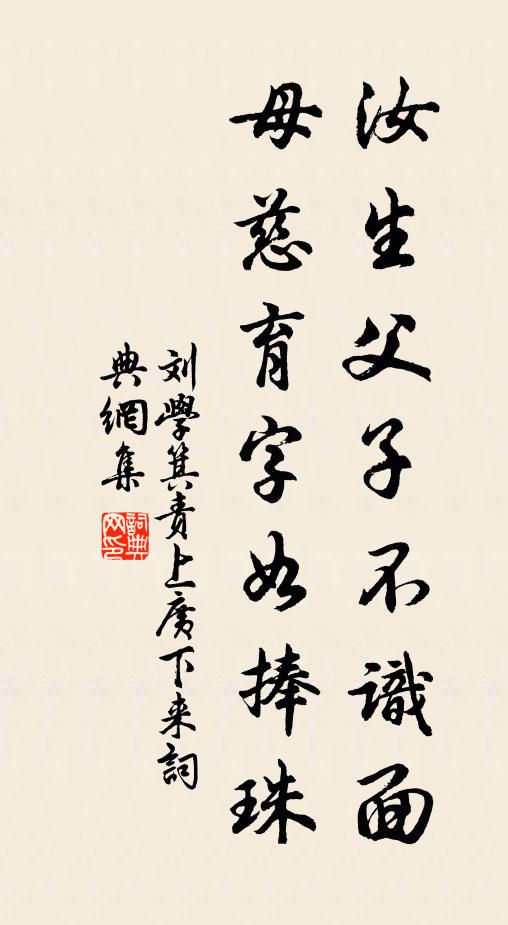 汝生父子不識面
母慈育字如捧珠
刘學箕責上廣下来詞
典網集
詞典
网印